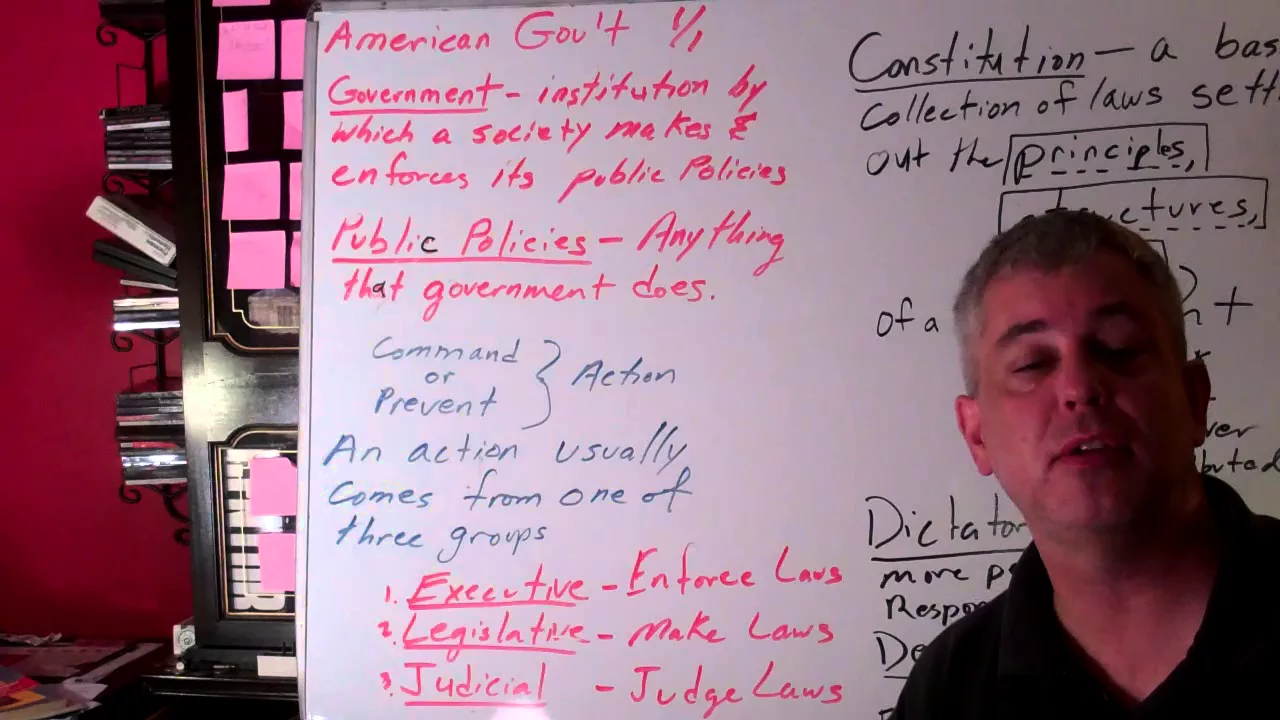 American Gov't 1/1
Government - institution by
which a society makes &
enforces its public Policies
Public Policies - Anything
that government does.
Command
or
Prevent
Action
An action usually
comes from one of
three groups
1. Executive - Enforce Laws
2. Legislative - Make Laws
3. Judicial - Judge Laws
Constitution - a bas
Collection of laws sett
out the principles,
structures,
of a
Dictator
more pe
Respon
De